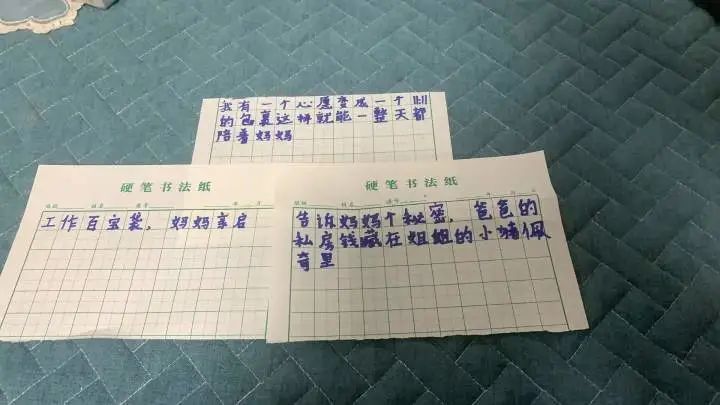 我有一个心愿变成一个11:11
的包裹这样就能一整天都
陪着妈妈
硬笔书法纸
工作百宝袋，妈妈亲启
硬笔书法纸
告诉妈妈个秘密，爸爸的
私房钱藏在姐姐的小猪佩
奇里